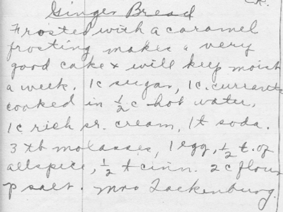 Ginger Bread
Frosted with a caramel
frosting makes a very
good cake & will keep moist
a week. 1c sugar, 1c. currants
cooked in ½c hot water,
1c rich sr. cream, 1t soda.
3 tb molasses, 1 egg, ½ t. of
allspice, ½ t cinn. 2c flour
p salt. Mrs Tackenburg.